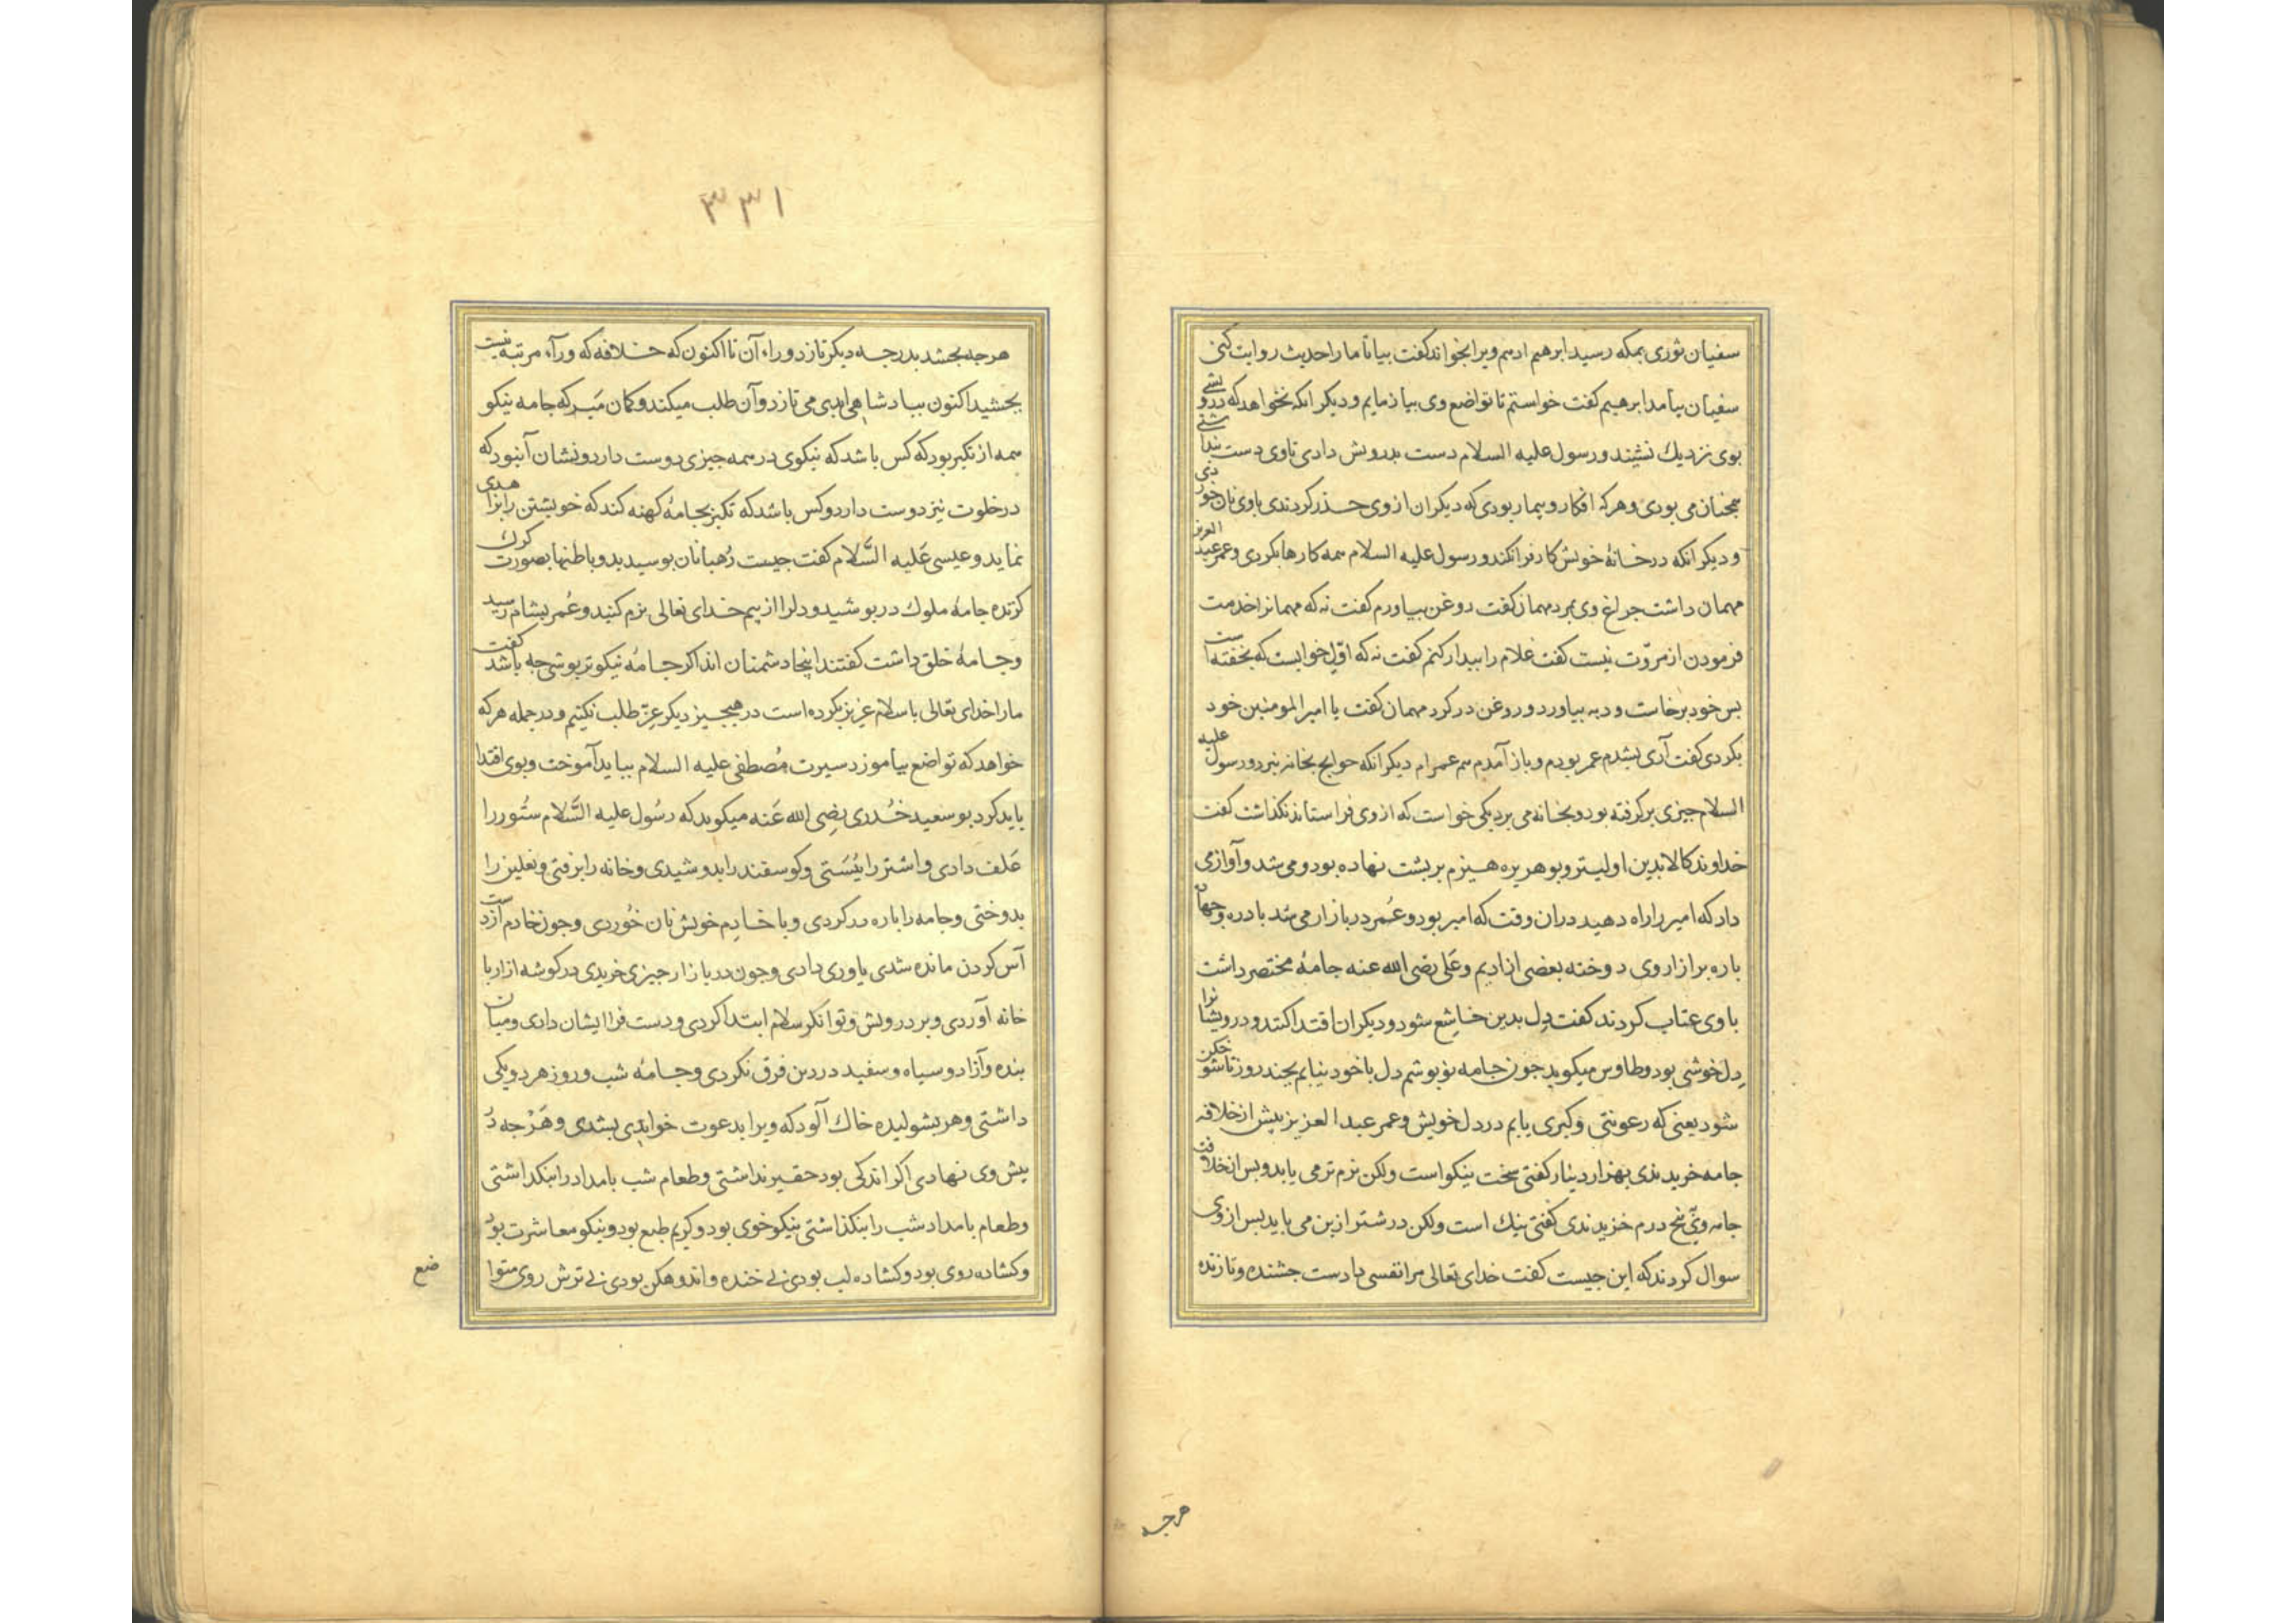 سفیان ثوری بمکه رسید ابرهیم ادهم ویرا بخواند کفت بیا تا ما را حدیث روایت کنی
سفیان بیامد ابرهیم کفت خواستم تا تواضع وی بیازمایم و دیکر انکه نخواهد که درو
بوی نزدیك نشیند و رسول علیه السلام دست بدرویش دادی تا وی دست
همچنان می بودی و هرکه افکار و بیمار بودی که دیکران از وی حذر کردندی با وی نان خوردی
و دیکر انکه در خانهٔ خویش کار فرا نکند و رسول علیه السلام همه کارها بکردی و عمر عبد العزیز
مهمان داشت جراغ وی بمرد مهمان کفت روغن بیاورم کفت نه که مهمانرا خدمت
فرمودن از مروّت نیست کفت غلام را بیدار کنم کفت نه که اوّل خوابست که بخفته است
بس خود برخاست و دبه بیاورد و روغن در کرد مهمان کفت یا امیر المومنین خود
بکردی کفت آری بشدم عمر بودم و باز آمدم هم عمرام دیکر انکه حوایج بخانه نبرد و رسول علیه
السلام جیزی برکرفته بود و بخانه می برد یکی خواست که از وی فرا ستاند نکذاشت کفت
خداوند کالا بدین اولیتر و بو هریره هیزم بر بشت نهاده بود و می شد و آواز می
داد که امیر را راه دهید دران وقت که امیر بود و عُمر در بازار می شد با دره و جهار
باره بر ازار وی دوخته بعضی از ادیم و علی رضی الله عنه جامهٔ مختصر داشت
با وی عتاب کردند کفت دل بدین خاشع شود و دیکران اقتدا کنند و درویشانرا
دل خوشی بود و طاوس میکوید جون جامه نو بوشم دل با خود نیابم بجند روز تا شوخکن
شود یعنی که رعونتی و کبری یابم در دل خویش و عمر عبد العزیز بیش از خلافه
جامه خریدندی بهزار دینار کفتی سخت نیکو است ولکن نرم تر می باید و بس از خلافت
جامه وی بنج درم خریدندی کفتی نیك است ولکن درشتر ازین می باید بس از وی
سوال کردند که این جیست کفت خدای تعالی مرا نفسی داد است جشنده و تازنده
هرجه
٣٣١
هرجه بجشد بدرجه دیکر تازد وراء آن تا اکنون که خلافه که وراء آن مرتبه نیست
بجشید اکنون ببادشاهی ابدی می تازد و آن طلب میکند و کمان مَبر که جامه نیکو
همه از تکبر بود که کس باشد که نیکوی در همه جیزی دوست دارد و نشان آن بود که
در خلوت نیز دوست دارد و کس باشد که تکبر بجامهٔ کهنه کند که خویشتن را بزاهدی
نماید و عیسی عَلیه السَّلام کفت جیست رُهبانان بوسیدید و باطنها بصورت کرك
کرده جامهٔ ملوك در بوشید و دلرا از بیم خدای تعالی نرم کنید و عُمر بشام رسید
و جامهٔ خلق داشت کفتند اینجا دشمنان اند اکر جامهٔ نیکوتر بوشی جه باشد کفت
ما را خدای تعالی باسلام عزیز بکرده است در هیجیز دیکر عِزّ طلب نکنیم و در جمله هرکه
خواهد که تواضع بیاموزد سیرت مُصطفی علیه السلام بباید آموخت و بوی اقتدا
باید کرد بو سعید خُدری رضی الله عَنه میکوید که رسُول علیه السَّلام ستُور را
عَلف دادی و اشتر را ببَستی و کوسفند را بدوشیدی و خانه را برفتی و نعلین را
بدوختی و جامه را باره در کردی و با خادِم خویش نان خُوردی و جون خادم از دست
آس کردن مانده شدی یاوری دادی و جون در بازار جیزی خریدی در کوشه ازار با
خانه آوردی و بر درویش و توانکر سلام ابتدا کردی و دست فرا ایشان دادی و میان
بنده و آزاد و سیاه و سفید در دین فرق نکردی و جامهٔ شب و روز هر دو یکی
داشتی و هر بشولیده خاك آلود که ویرا بدعوت خواندی بشدی و هَرْجه در
بیش وی نهادی اکر اندکی بود حقیر نداشتی و طعام شب بامداد را بنکذاشتی
و طعام بامداد شب را بنکذاشتی نیکو خوی بود و کریم طبع بود و نیکو معاشرت بود
و کشاده روی بود و کشاده لب بودی بی خنده و اندوهکن بودی بی ترش روی متوا
ضع